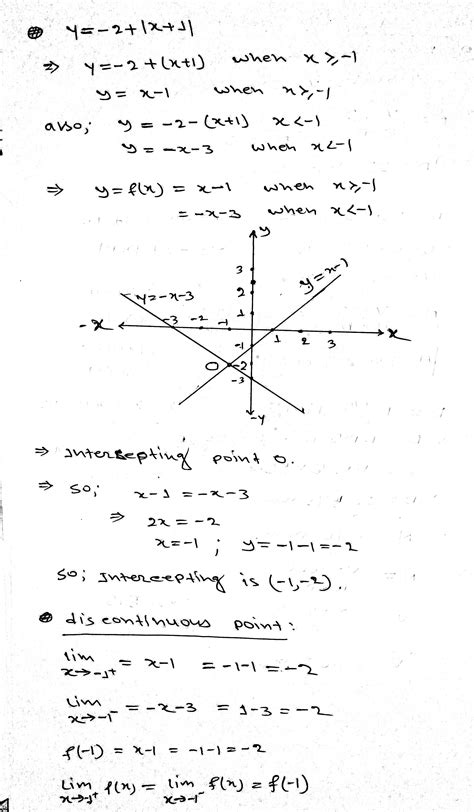 y=-2+|x+1|
⇒ y=-2+(x+1) when x≥-1
y= x-1 when x≥-1
also; y = -2-(x+1) x<-1
y = -x-3 when x<-1
⇒ y=f(x) = x-1 when x≥-1
= -x-3 when x<-1
y
3
y=x-1
2
y=-x-3
1
-x -3 -2 -1 1 2 3 x
-1
O -2
-3
-y
⇒ Intersepting point O.
⇒ so; x-1 = -x-3
⇒ 2x = -2
x=-1 ; y=-1-1=-2
so; Intercepting is (-1,-2).
discontinuous point:
lim x→-1+ = x-1 = -1-1 = -2
Lim x→-1- = -x-3 = 1-3 = -2
f(-1) = x-1 = -1-1 = -2
Lim x→-1+ f(x) = lim x→-1- f(x) = f(-1)